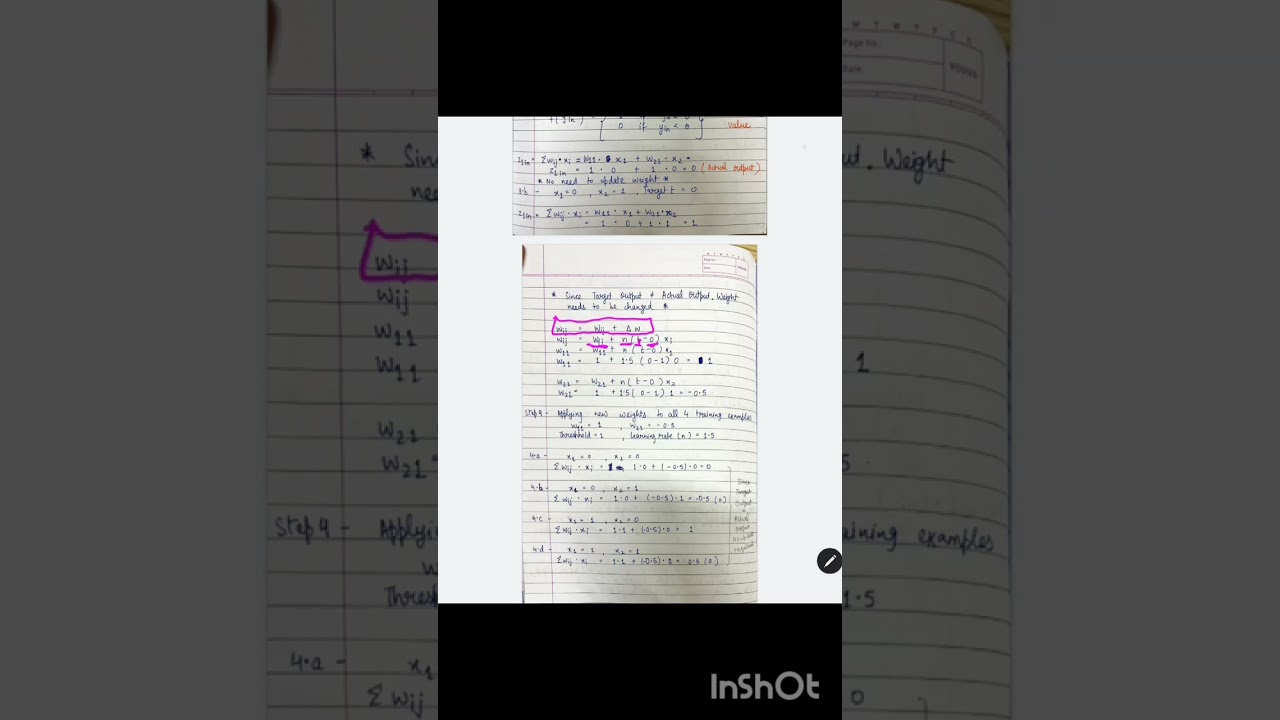 0 if yin < θ
value
Z1in = Σwij·xi = W11 · x1 + W21 · x2 =
Z1in = 1 · 0 + 1 · 0 = 0 (Actual output)
* No need to update weight *
x1=0 , x2=1 , Target t = 0
Z1in = Σwij·xi = W11 · x1 + W21·x2
= 1 · 0 + 1·1 = 1
Page No.:
Date:
YOUVA
* Since Target output ≠ Actual Output, Weight
needs to be changed *
Wij = Wij + Δw
Wij = Wij + n(t-0) xi
W11 = W11 + n(t-0) x1
W11 = 1 + 1.5 (0-1) 0 = 1
W21 = W21 + n(t-0) x2
W21 = 1 + 1.5(0-1) 1 = -0.5
Step 4 - Applying new weights to all 4 training examples
W11 = 1 , W21 = -0.5
Threshold = 1 , Learning rate (n) = 1.5
4.a - x1=0 , x2=0
Σwij·xi = 1·0 + (-0.5)·0=0
4.b - x1=0 , x2=1
Σwij·xi = 1·0 + (-0.5)·1 = -0.5 (0)
4.c - x1=1 , x2=0
Σwij·xi = 1·1 + (-0.5)·0 = 1
4.d - x1=1 , x2=1
Σwij·xi = 1·1 + (-0.5)·1 = 0.5 (0)
Since
Target
Output
=
Actual
Output
InShOt